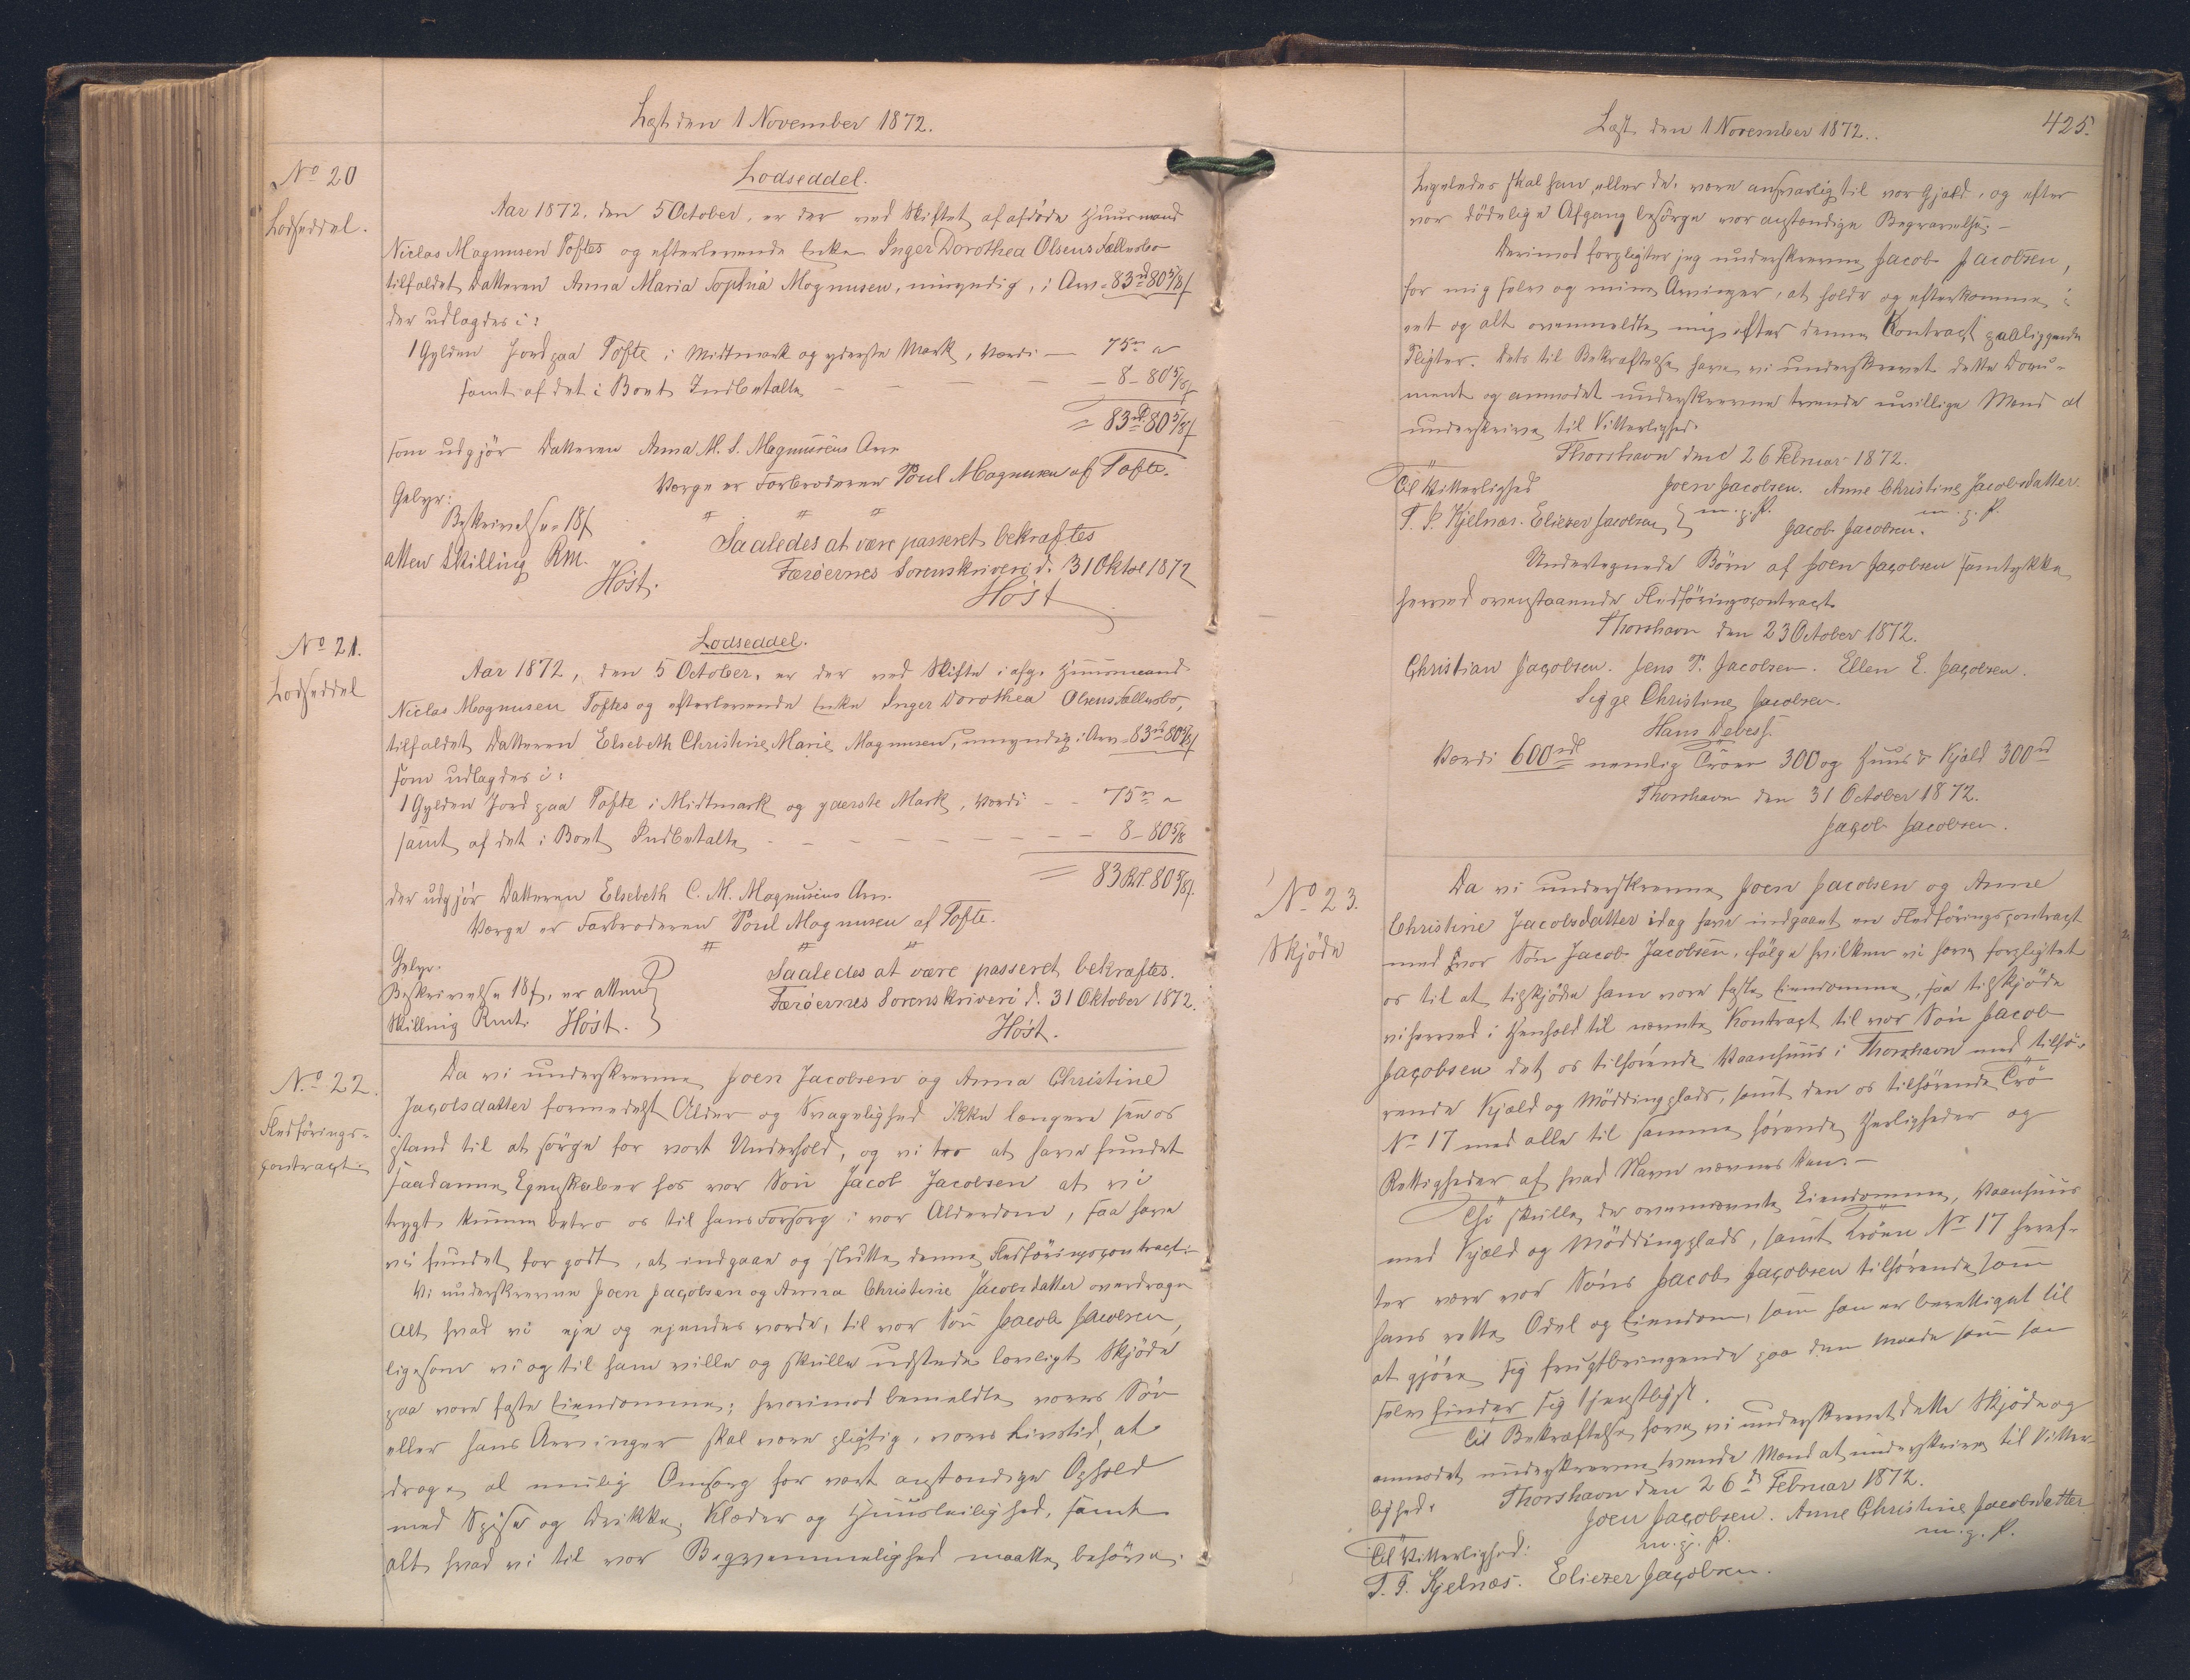 Læst den 1 November 1872.
No 20
Lodseddel.
Lodseddel.
Aar 1872, den 5 October, er der ved Skiftet af afdöde Huusmand
Niclas Magnusen Toftes og efterlevende Enke Inger Dorothea Olsens Fællesbo
tilfaldet Datteren Anna Maria Sophia Magnusen, umyndig, i Arv = 83rd 80 5/8 f
der udlagdes i:
1 Gylden Jord paa Tofte i Midtmark og yderste Mark, Værdi — 75rd "
samt af det i Boet Indbetalte — — — — 8 – 80 5/8 f
= 83rd 80 5/8 f
som udgjör Datteren Anna M. S. Magnusens Arv
Værge er Farbroderen Poul Magnusen af Tofte.
Gebyr:
Beskrivelse = 18 f
atten Skilling Rm.
Höst.
Saaledes at være passeret bekræftes
Færöernes Sorenskriveri d. 31 Oktbr 1872
Höst
No 21.
Lodseddel
Lodseddel.
Aar 1872, den 5 October, er der ved Skifte i afg. Huusmand
Niclas Magnusen Toftes og efterlevende Enke Inger Dorothea Olsens Fællesbo,
tilfaldet Datteren Elsebeth Christine Marie Magnusen, umyndig i Arv = 83rd 80 5/8 f
som udlagdes i:
1 Gylden Jord paa Tofte i Midtmark og yderste Mark, Værdi - - 75rd "
samt af det i Boet Indbetalte - - - - - - - 8 – 80 5/8
= 83 Rd. 80 5/8 f.
der udgjör Datteren Elsebeth C. M. Magnusens Arv.
Værge er Farbroderen Poul Magnusen af Tofte.
Gebyr.
Beskrivelse 18 f, er atten
Skilling Rmt. Höst.
Saaledes at være passeret bekræftes.
Færöernes Sorenskriveri d. 31 Oktober 1872.
Höst.
No 22.
Fledförings-
contract.
Da vi underskrevne Joen Jacobsen og Anna Christine
Jacobsdatter formedelst Alder og Svagelighed ikke længere see os
istand til at sörge for vort Underhold, og vi tro at have fundet
saadanne Egenskaber hos vor Sön Jacob Jacobsen at vi
trygt kunne betro os til hans Forsorg i vor Alderdom, saa have
vi fundet for godt, at indgaae og slutte denne Fledföringscontract:-
Vi underskrevne Joen Jacobsen og Anna Christine Jacobsdatter overdrage
Alt, hvad vi eje og ejendes vorde, til vor Sön Jacob Jacobsen,
ligesom vi og til ham ville og skulle udstede lovligt Skjöde
paa vore faste Eiendomme; hvorimod bemeldte vores Sön
eller hans Arvinger skal være pligtig, vores Livstid, at
drage al mulig Omsorg for vort anstændige Ophold
med Spise og Drikke, Klæder og Huusleilighed, samt
alt hvad vi til vor Beqvemmelighed maatte behöve;
Læst den 1 November 1872.
425.
Ligeledes skal han, eller de, være ansvarlig til vor Gjæld, og efter
vor dödelige Afgang besörge vor anstændige Begravelse; —
Derimod forpligter jeg underskrevne Jacob Jacobsen,
for mig selv og mine Arvinger, at holde og efterkomme i
eet og alt ovenmeldte mig efter denne Kontract paaliggende
Pligter. Dets til Bekræftelse have vi underskrevet dette Docu-
ment og anmodet underskrevne tvende uvillige Mænd at
underskrive til Vitterlighed.
Thorshavn den 26 Februar 1872.
Til Vitterlighed
Joen Jacobsen. Anne Christine Jacobsdatter.
T. P. Kjelnæs. Eliezer Jacobsen
m. p. P. m. p. P.
Jacob Jacobsen.
Undertegnede Börn af Joen Jacobsen samtykke
herved ovenstaaende Fledföringscontract.
Thorshavn den 23 October 1872.
Christian Jacobsen. Jens P. Jacobsen. Ellen E. Jacobsen.
Sigge Christine Jacobsen.
Hans Debess.
Værdi 600rdl nemlig Tröen 300 og Huus & Kjæld 300rd
Thorshavn den 31 October 1872.
Jacob Jacobsen.
No 23.
Skjöde
Da vi underskrevne Joen Jacobsen og Anne
Christine Jacobsdatter idag have indgaaet en Fledföringscontract
med vor Sön Jacob Jacobsen, ifölge hvilken vi have forpligtet
os til at tilskjöde ham vore faste Eiendomme, saa tilskjöde
vi herved i Henhold til nævnte Kontract til vor Sön Jacob
Jacobsen det os tilhörende Vaanhuus i Thorshavn med tilhö-
rende Kjæld og Möddingplads, samt den os tilhörende Trö
No 17 med alle til samme hörende Herligheder og
Rettigheder af hvad Navn nævnes kan. —
Thi skulle de ovennævnte Eiendomme, Vaanhuus
med Kjæld og Möddingplads, samt Tröen No 17 heref-
ter være vor Söns Jacob Jacobsen tilhörende som
hans rette Odel og Eiendom, som han er berettiget til
at gjöre sig frugtbringende paa den Maade som han
selv finder sig tjenstligst.
Til Bekræftelse have vi underskrevet dette Skjöde og
anmodet underskrevne tvende Mænd at underskrive til Vitter-
lighed.
Thorshavn den 26 d Februar 1872.
Joen Jacobsen. Anne Christine Jacobsdatter
m. p. P. m. p. P.
Til Vitterlighed:
T. P. Kjelnæs. Eliezer Jacobsen.